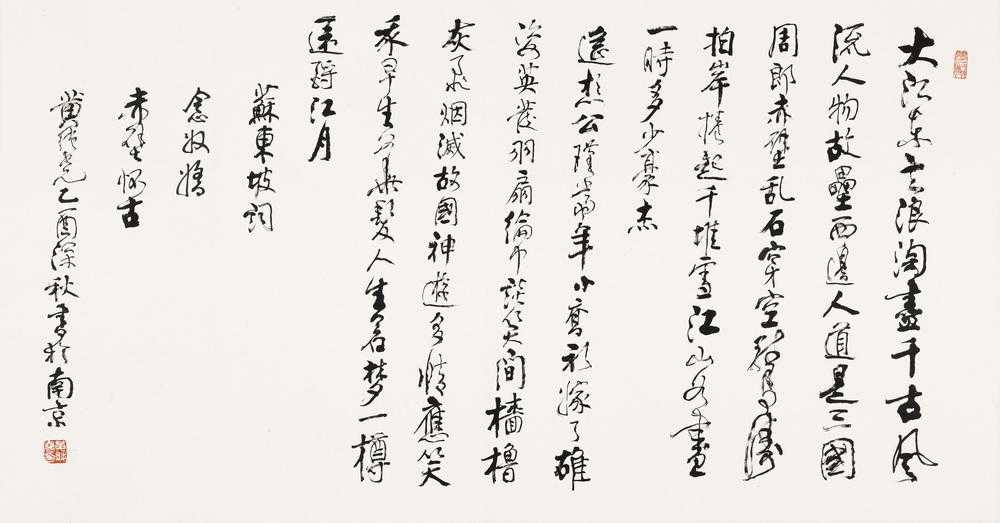 大江东去浪淘盡千古风
流人物故壘西邊人道是三國
周郎赤壁乱石穿空驚濤
拍岸捲起千堆雪江山如畫
一時多少豪杰
遥想公瑾當年小喬初嫁了雄
姿英發羽扇綸巾談笑间檣櫓
灰飛烟滅故國神遊多情應笑
我早生華髮人生若梦一樽
還酹江月
蘇東坡詞
念奴嬌
赤壁怀古
乙酉深秋書於南京